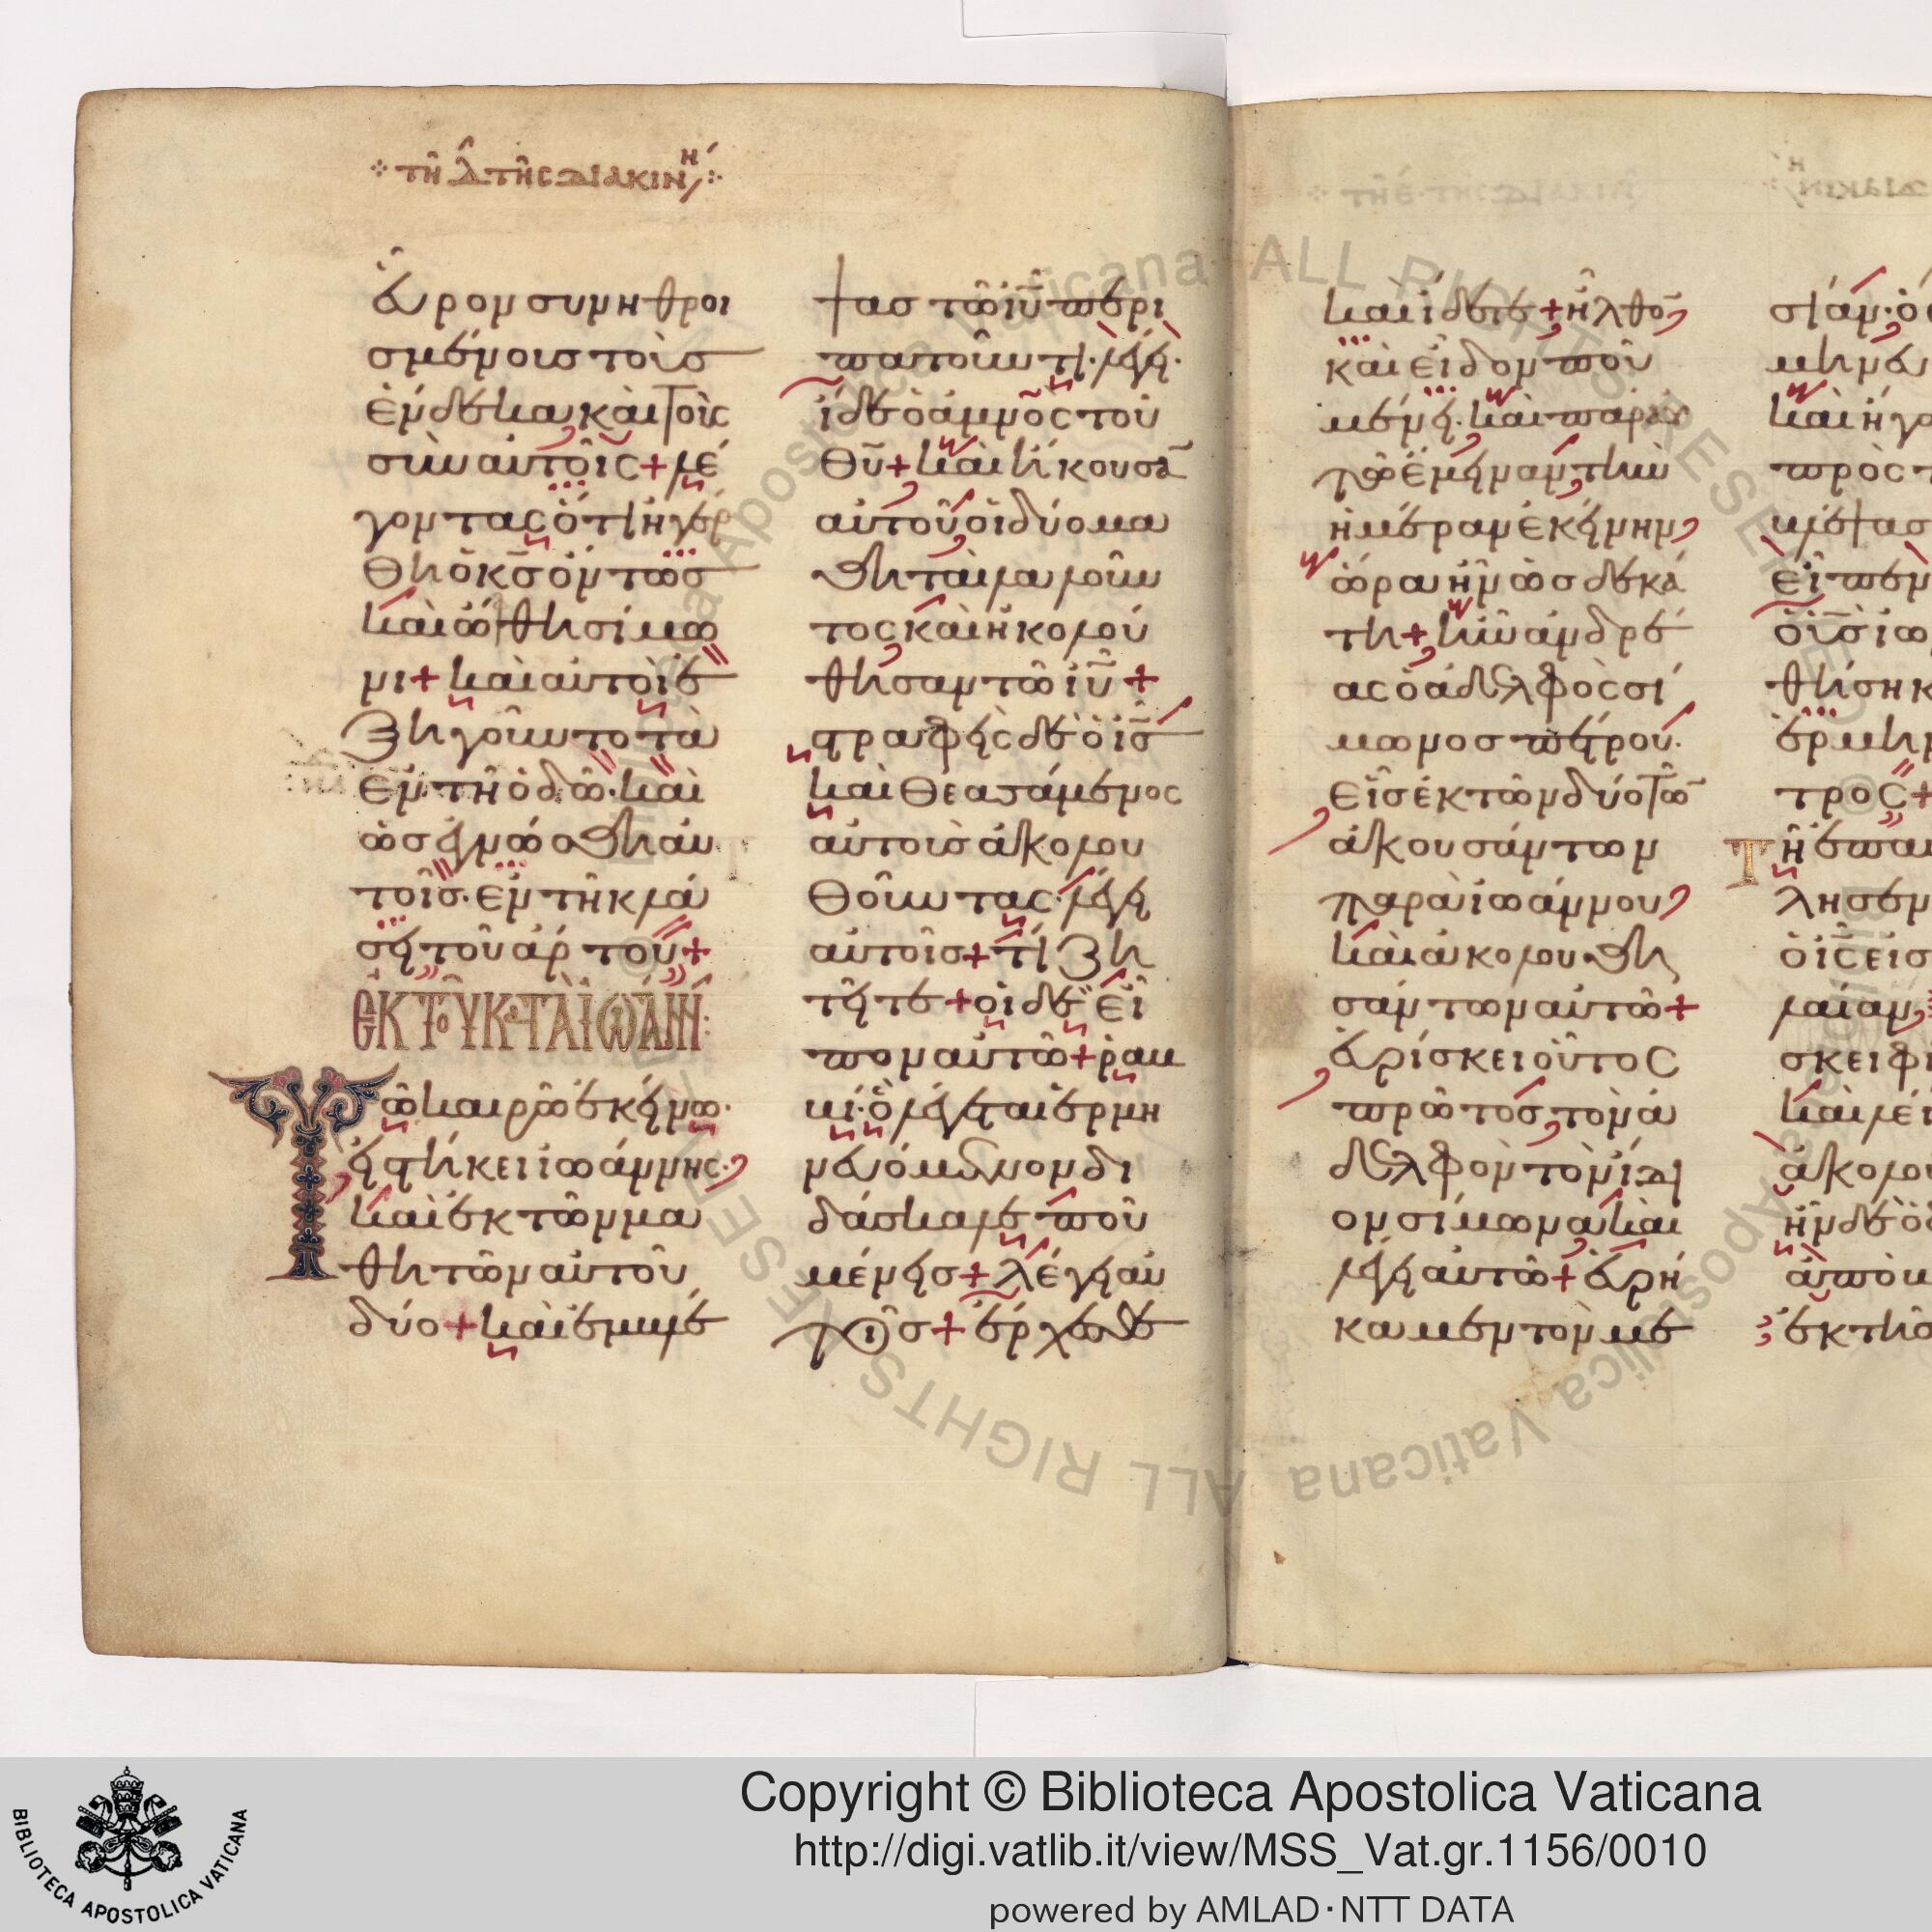 τῇ δ̅ τῆς διακινη
εὗρον συνηθροι
σμένους τοὺς
ἕνδεκα, καὶ τοὺς
σὺν αὐτοῖς + λέ
γοντας ὅτι ἠγέρ
θη ὁ κ̅ς̅ ὄντως
καὶ ὤφθη σίμω
νι + καὶ αὐτοὶ ἐ
ξηγοῦντο τὰ
ἐν τῇ ὁδῷ. καὶ
ὡς ἐγνώσθη αὐ
τοῖς. ἐν τῇ κλά
σει τοῦ ἄρτου +
ἐκ τοῦ κατὰ ἰωάνν
Τῷ καιρῷ ἐκείνῳ.
εἱστήκει ἰωάννης.
καὶ ἐκ τῶν μα
θητῶν αὐτοῦ
δύο + καὶ ἐμβλέ
ψας τῷ ι̅υ̅ περι
πατοῦντι. λέγει.
ἴδε ὁ ἀμνὸς τοῦ
θ̅υ̅ + καὶ ἤκουσα̅
αὐτοῦ οἱ δύο μα
θηταὶ λαλοῦν
τος καὶ ἠκολού
θησαν τῷ ι̅υ̅ +
στραφεὶς δὲ ὁ ι̅ς̅
καὶ θεασάμενος
αὐτοὺς ἀκολου
θοῦντας. λέγει
αὐτοῖς + τί ζη
τεῖτε + οἱ δὲ εἶ
πον αὐτῷ + ῥαβ
βί. ὃ λέγεται ἑρμη
νευόμενον δι
δάσκαλε ποῦ
μένεις + λέγει αὐ
τοῖς + ἔρχεσθε
καὶ ἴδετε + ἦλθο̅
καὶ εἶδον ποῦ
μένει. καὶ παρ' αὐ
τῷ ἔμειναν τὴν
ἡμέραν ἐκείνην,
ὥρα ἦν ὡς δεκά
τη + ἦν ἀνδρέ
ας ὁ ἀδελφὸς σί
μωνος πέτρου.
εἷς ἐκ τῶν δύο τῶ̅
ἀκουσάντων
παρὰ ἰωάννου,
καὶ ἀκολουθη
σάντων αὐτῷ +
εὑρίσκει οὗτος
πρῶτος τὸν ἀ
δελφὸν τὸν ἴδι
ον σίμωνα καὶ
λέγει αὐτῷ + εὑρή
καμεν τὸν με
σίαν. ὁ
καὶ ἤγα
πρὸς τ
βλέψας
εἶπεν
ὁ ι̅ς̅
θήσῃ κ
ἑρμην
τρος +
Τῇ ἐπαύ
λησεν
ὁ ι̅ς̅ εἰς
λαίαν,
σκει φί
καὶ λέγ
ἀκολου
ἦν δὲ ὁ
ἀπὸ β
ἐκ τῆς
Copyright © Biblioteca Apostolica Vaticana
http://digi.vatlib.it/view/MSS_Vat.gr.1156/0010
powered by AMLAD·NTT DATA
BIBLIOTECA APOSTOLICA VATICANA